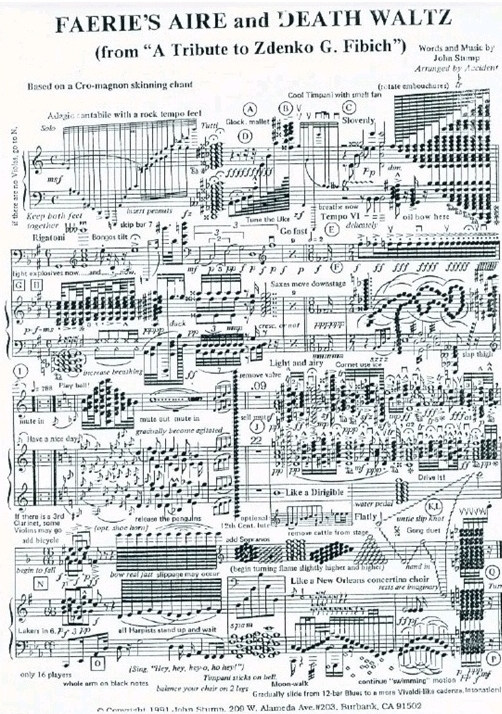 FAERIE'S AIRE and DEATH WALTZ
(from "A Tribute to Zdenko G. Fibich")
Words and Music by
John Stump
Arranged by Accident
Based on a Cro-magnon skinning chant
(rotate embouchures)
Cool Timpani with small fan
Adagio cantabile with a rock tempo feel
A
B
C
Slovenly
Solo
Tutti
Glock. mallet
D
if there are no Violas, go to N.
msf
dim.
insert peanuts
Tune the Uke
breathe now
Keep both feet
together
skip bar 7
Go fast
Tempo VI
delicately
oil bow here
Rigatoni
Bongos tilt
E
light explosives now
F
G
H
Saxes move downstage
duck
cresc. or not
increase breathing
slap thigh
I
Play ball!
Light and airy
Cornet use ice
remove valve
.09
mute in
mute out
mute in
gradually become agitated
J
22
Have a nice day
Drive it!
Like a Dirigible
water pedal
If there is a 3rd
Clarinet, some
Violins may go
add bicycle
release the penguins
optional
12th Cent.
Flatly
untie slip knot
K,L
Gong duet
add Sopranos
remove cattle from stage
begin to fall
bow real fast slippage may occur
(begin turning flame slightly higher and higher)
hand in
N
Like a New Orleans concertina choir
rests are imaginary
Lakers in 6.
all Harpists stand up and wait
spam
O
P
only 16 players
(Sing, "Hey, hey, hey-o, ho hey!")
Timpani sticks on bell
whole arm on black notes
balance your chair on 2 legs
Moon-walk
continue "swimming" motion
Gradually slide from 12-bar Blues to a more Vivaldi-like cadence.
© Copyright 1991 John Stump, 209 W. Alameda Ave.#203, Burbank, CA 91502